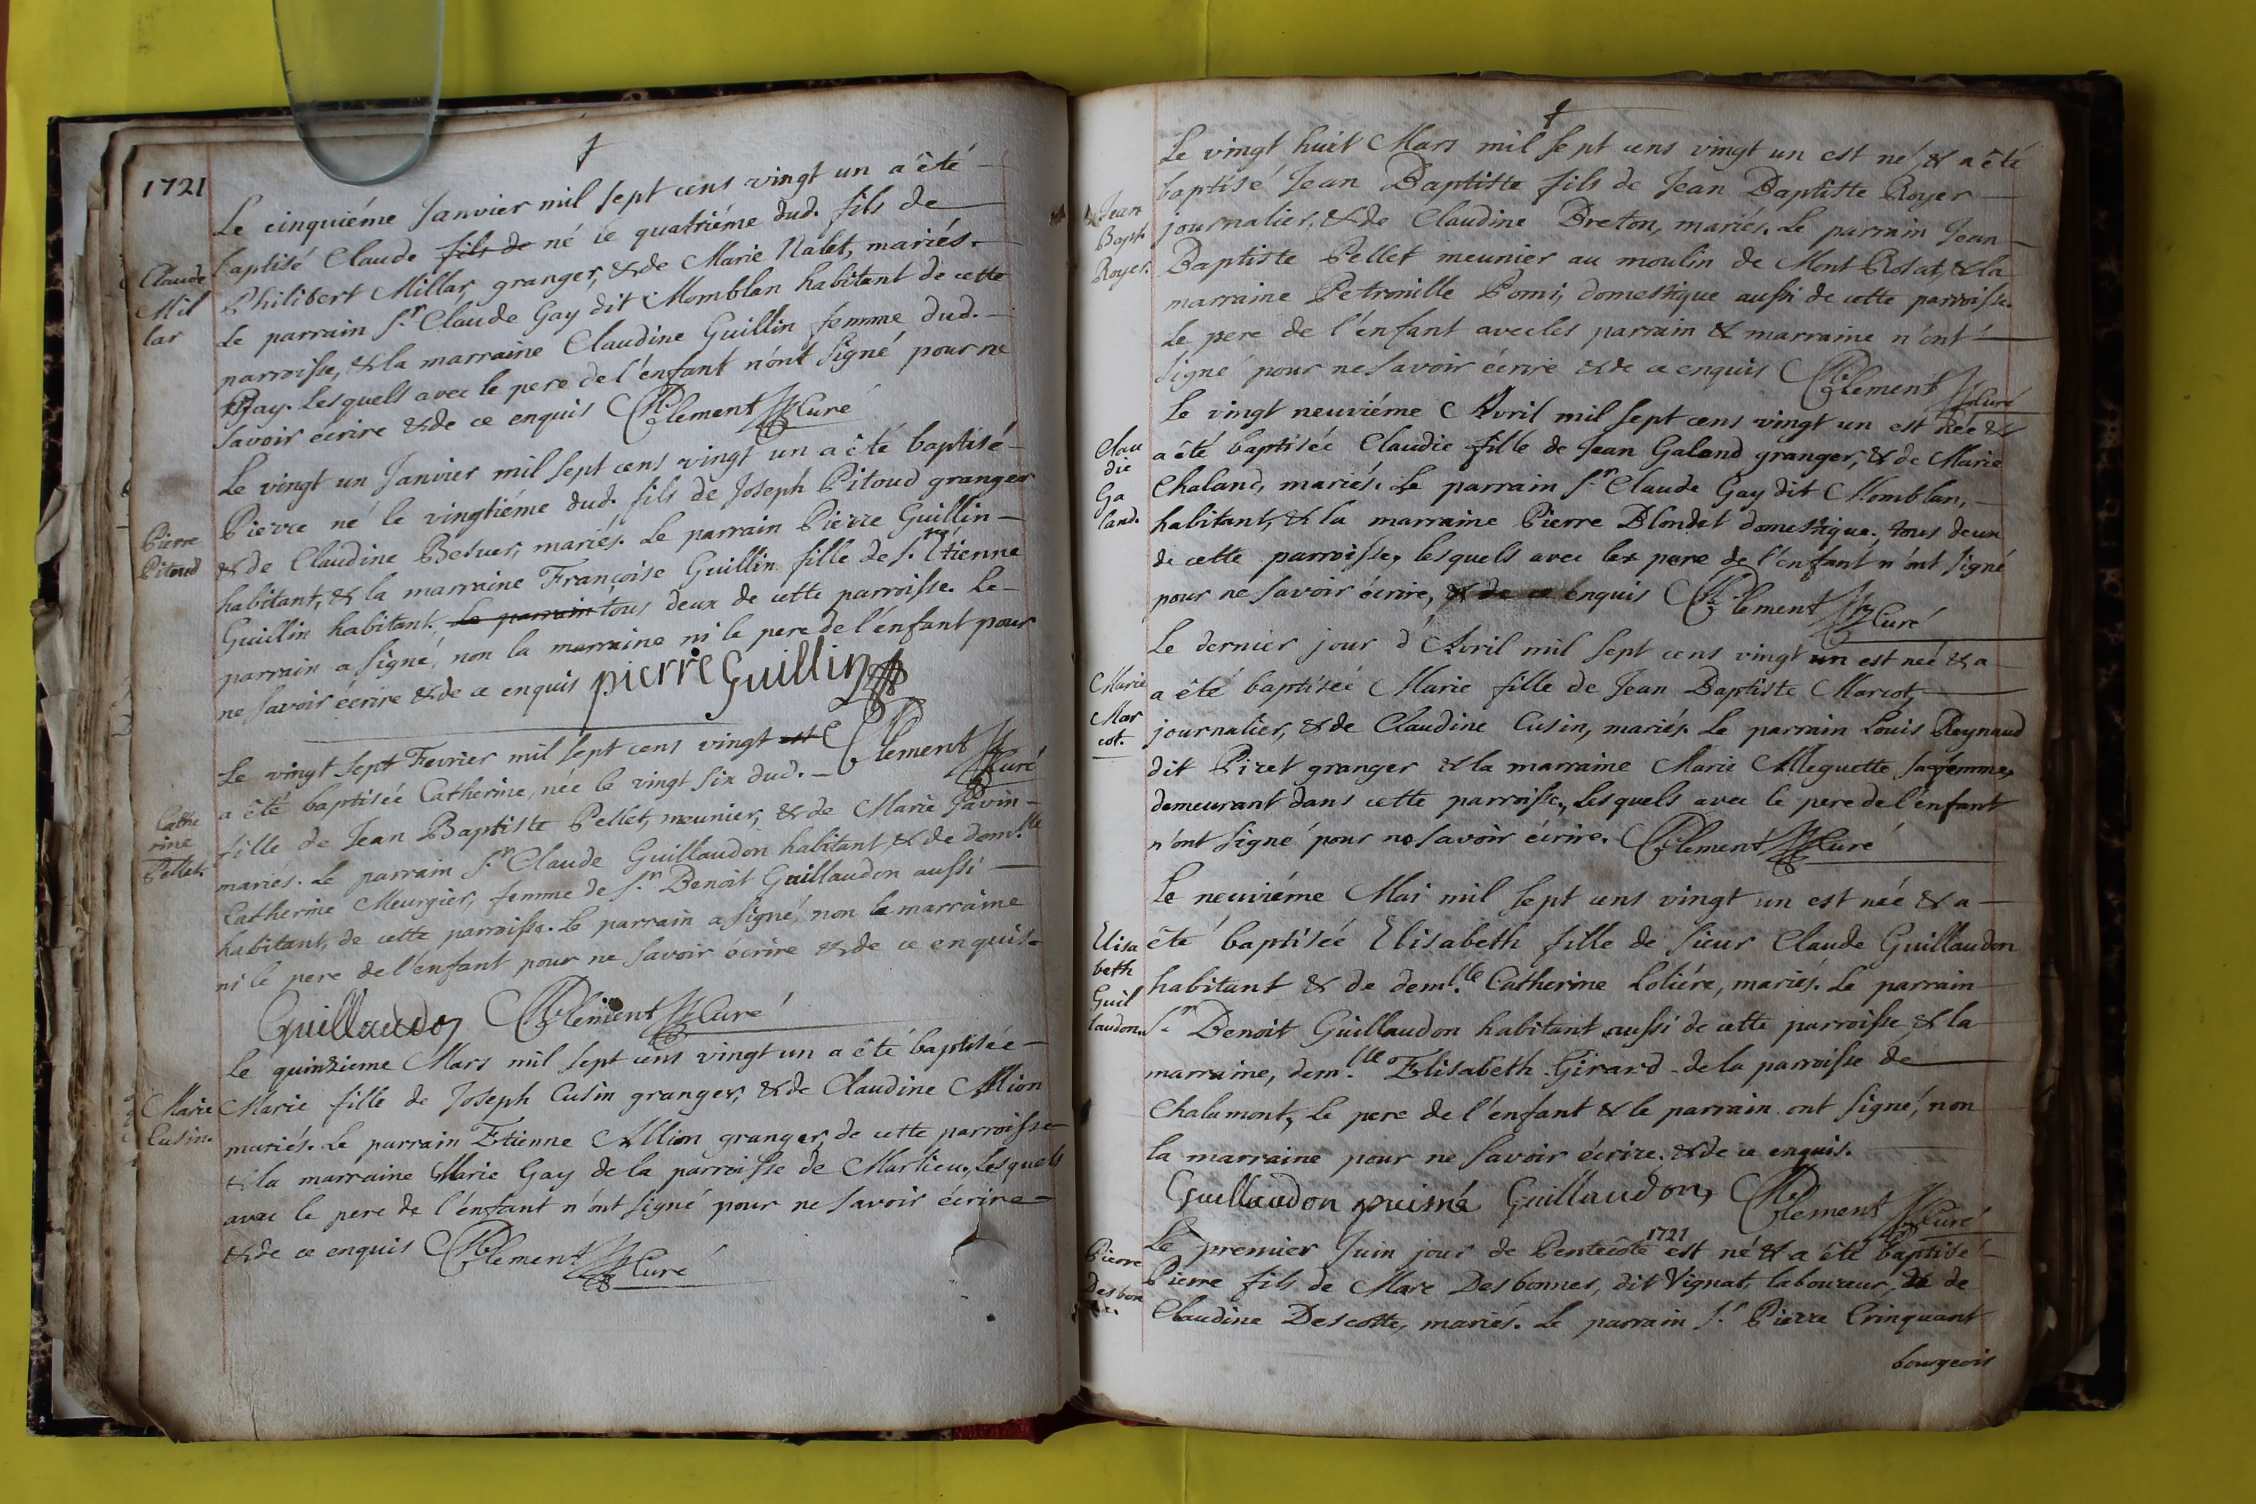 1721
Le cinquiéme Janvier mil sept cens vingt un a êté
baptisé Claude fils de né le quatriéme dud. fils de
Philibert Millar, granger, & de Marie Nalet, mariés.
Le parrain Sr. Claude Gay dit Momblan habitant de cette
parroisse, & la marraine Claudine Guillin femme dud.
Gay. Lesquels avec le pere de l'enfant n'ont signé pour ne
savoir écrire & de ce enquis Clement Curé
Claude
Mil
lar
Le vingt un Janvier mil sept cens vingt un a êté baptisé
Pierre né le vingtiéme dud. fils de Joseph Pitoud granger
& de Claudine Besuer, mariés. Le parrain Pierre Guillin
habitant, & la marraine Françoise Guillin fille de Sr. Etienne
Guillin habitant. Le parrain tous deux de cette parroisse. Le
parrain a signé, non la marraine ni le pere de l'enfant pour
ne savoir écrire & de ce enquis pierre Guillin
Pierre
Pitoud
Clement Curé
Le vingt sept Fevrier mil sept cens vingt est
a êté baptisée Catherine, née le vingt six dud.
fille de Jean Baptiste Pellet, meunier, & de Marie Javin
mariés. Le parrain Sr. Claude Guillaudon habitant & de demlle
Catherine Meurgier, femme de Sr. Benoit Guillaudon aussi
habitant, de cette parroisse. Le parrain a signé, non la marraine
ni le pere de l'enfant pour ne savoir écrire & de ce enquis
Guillaudon Clement Curé
Cathe
rine
Pellet.
Le quinzieme Mars mil sept cens vingt un a êté baptisée
Marie fille de Joseph Cusin granger, & de Claudine Allion
mariés. Le parrain Etienne Allion granger, de cette parroisse
& la marraine Marie Gay de la parroisse de Marlieu, Lesquels
avec le pere de l'enfant n'ont signé pour ne savoir écrire
& de ce enquis Clement Curé
Marie
Cusin.
Le vingt huit Mars mil sept cens vingt un est né, & a êté
baptisé Jean Baptiste fils de Jean Baptiste Royer
journalier, & de Claudine Breton, mariés. Le parrain Jean
Baptiste Pellet meunier au moulin de Mont Rosat, & la
marraine Petronille Pomi, domestique aussi de cette parroisse.
Le pere de l'enfant avec les parrain & marraine n'ont
signé pour ne savoir écrire & de ce enquis Clement Curé
Jean
Bapt.
Royer.
Le vingt neuviéme Avril mil sept cens vingt un est née &
a êté baptisée Claudie fille de Jean Galand granger, & de Marie
Chaland, mariés. Le parrain Sr. Claude Gay dit Momblan,
habitant, & la marraine Pierre Blondet domestique, tous deux
de cette parroisse, lesquels avec le pere de l'enfant n'ont signé
pour ne savoir écrire, & de ce enquis Clement Curé
Clau
die
Ga
land.
Le dernier jour d'Avril mil sept cens vingt un est née & a
a êté baptisée Marie fille de Jean Baptiste Marcot,
journalier, & de Claudine Cusin, mariés. Le parrain Louis Reynaud
dit Pizet granger & la marraine Marie Alleguette sa femme,
demeurant dans cette parroisse, Lesquels avec le pere de l'enfant
n'ont signé pour ne savoir écrire. Clement Curé
Marie
Mar
cot.
Le neuviéme Mai mil sept cens vingt un est née & a
êté baptisée Elisabeth fille de sieur Claude Guillaudon
habitant & de demlle. Catherine Loliére, mariés. Le parrain
Sr. Benoit Guillaudon habitant aussi de cette parroisse, & la
marraine, demlle. Elisabeth Girard de la parroisse de
Chalamont, Le pere de l'enfant & le parrain ont signé, non
la marraine pour ne savoir écrire, & de ce enquis.
Guillaudon puiné Guillaudon, Clement Curé
Elisa
beth
Guil
laudon
Le premier Juin jour de Pentecôte 1721 est né & a êté baptisé
Pierre fils de Marc Desbonnes, dit Vignat, laboureur, & de
Claudine Descotte, mariés. Le parrain Sr. Pierre Crinquant
bourgeois
Pierre
Desbon